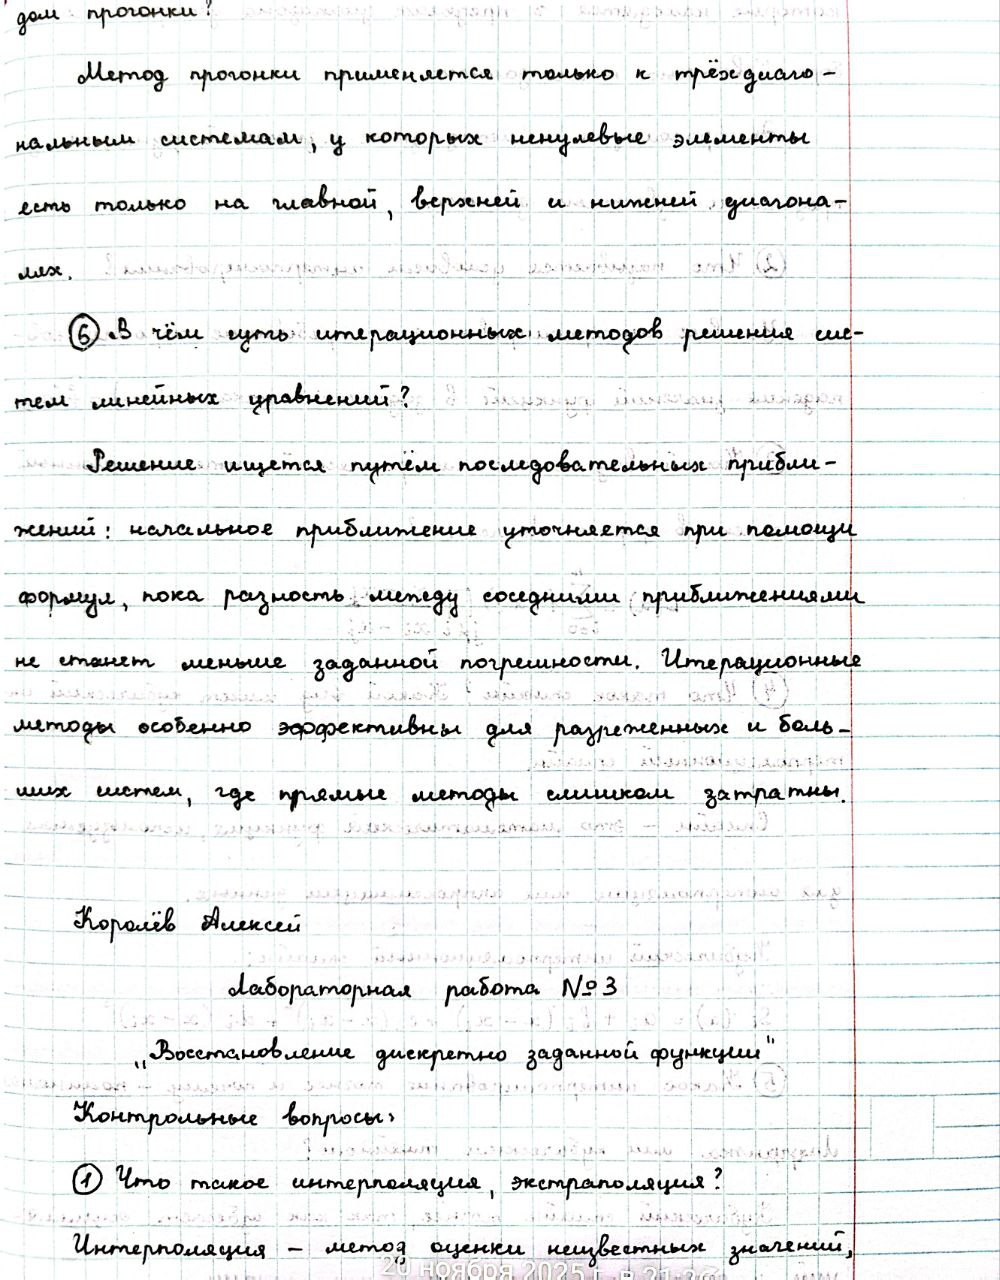 дом прогонки?
Метод прогонки применяется только к трёхдиаго-
нальным системам, у которых ненулевые элементы
есть только на главной, верхней и нижней диагона-
лях.
⑥ В чём суть итерационных методов решения сис-
тем линейных уравнений?
Решение ищется путём последовательных прибли-
жений: начальное приближение уточняется при помощи
формул, пока разность между соседними приближениями
не станет меньше заданной погрешности. Итерационные
методы особенно эффективны для разреженных и боль-
ших систем, где прямые методы слишком затратны.
Королёв Алексей
Лабораторная работа №3
„Восстановление дискретно заданной функции"
Контрольные вопросы:
① Что такое интерполяция, экстраполяция?
Интерполяция – метод оценки неизвестных значений,
20 ноября 2025 г. в